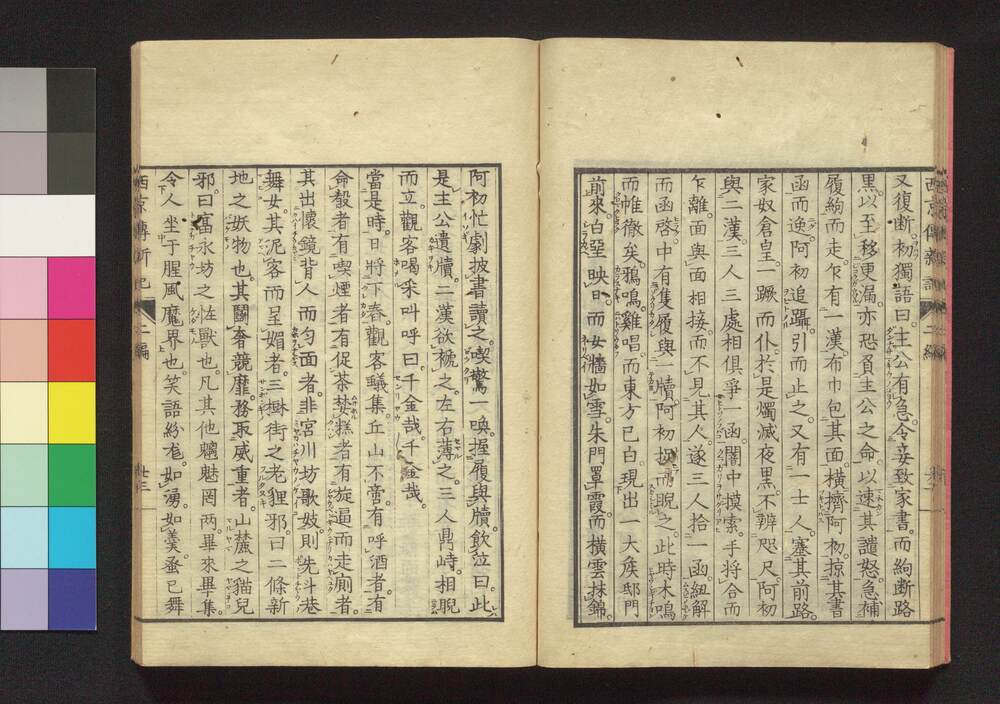 又復斷。初獨語曰。主公有急。令妾致家書。而絇斷路
黑。以至移更漏。亦恐負主公之命。以速其譴怒。急補
履絇而走。乍有一漢。布巾包其面。橫擠阿初。掠其書
函而逸。阿初追躡。引而止之。又有一士人。塞其前路。
家奴倉皇。一蹶而仆。於是燭滅夜黑。不辨咫尺。阿初
與二漢。三人三處相俱爭一函。闇中摸索。手將合而
乍離。面與面相接。而不見其人。遂三人拾一函。紐解
而函啓。中有隻履與一牘。阿初把而睨之。此時木鳴
而帷徹矣。鴉鳴雞唱。而東方已白。現出一大矦邸門
前來。白堊映日。而女墻如雪。朱門罩霞。而橫雲抹錦。
西京傳新記 二編
阿初忙劇披書讀之。喫驚一喚。握履與牘。飲泣曰。此
是主公遺牘。二漢欲褫之。左右薄之。三人鼎峙。相睨
而立。觀客喝采叫呼曰。千金哉。千金哉。
當是時。日將下舂。觀客蟻集。丘山不啻。有呼酒者。有
命殽者。有喫煙者。有促茶埜糕者。有旋逼而走廁者。
其出懷鏡背人而勻面者。非宮川坊歌妓。則先斗巷
舞女。其泥客而呈媚者。三樹街之老狸邪。曰二條新
地之妖物也。其鬭奢競靡。務取威重者。山麓之貓兒
邪。曰富永坊之怪獸也。凡其他魑魅罔兩。畢來畢集。
令人坐于腥風魔界也。笑語紛尨。如湧。如羹。蚤已舞
西京傳新記 二編 廿三